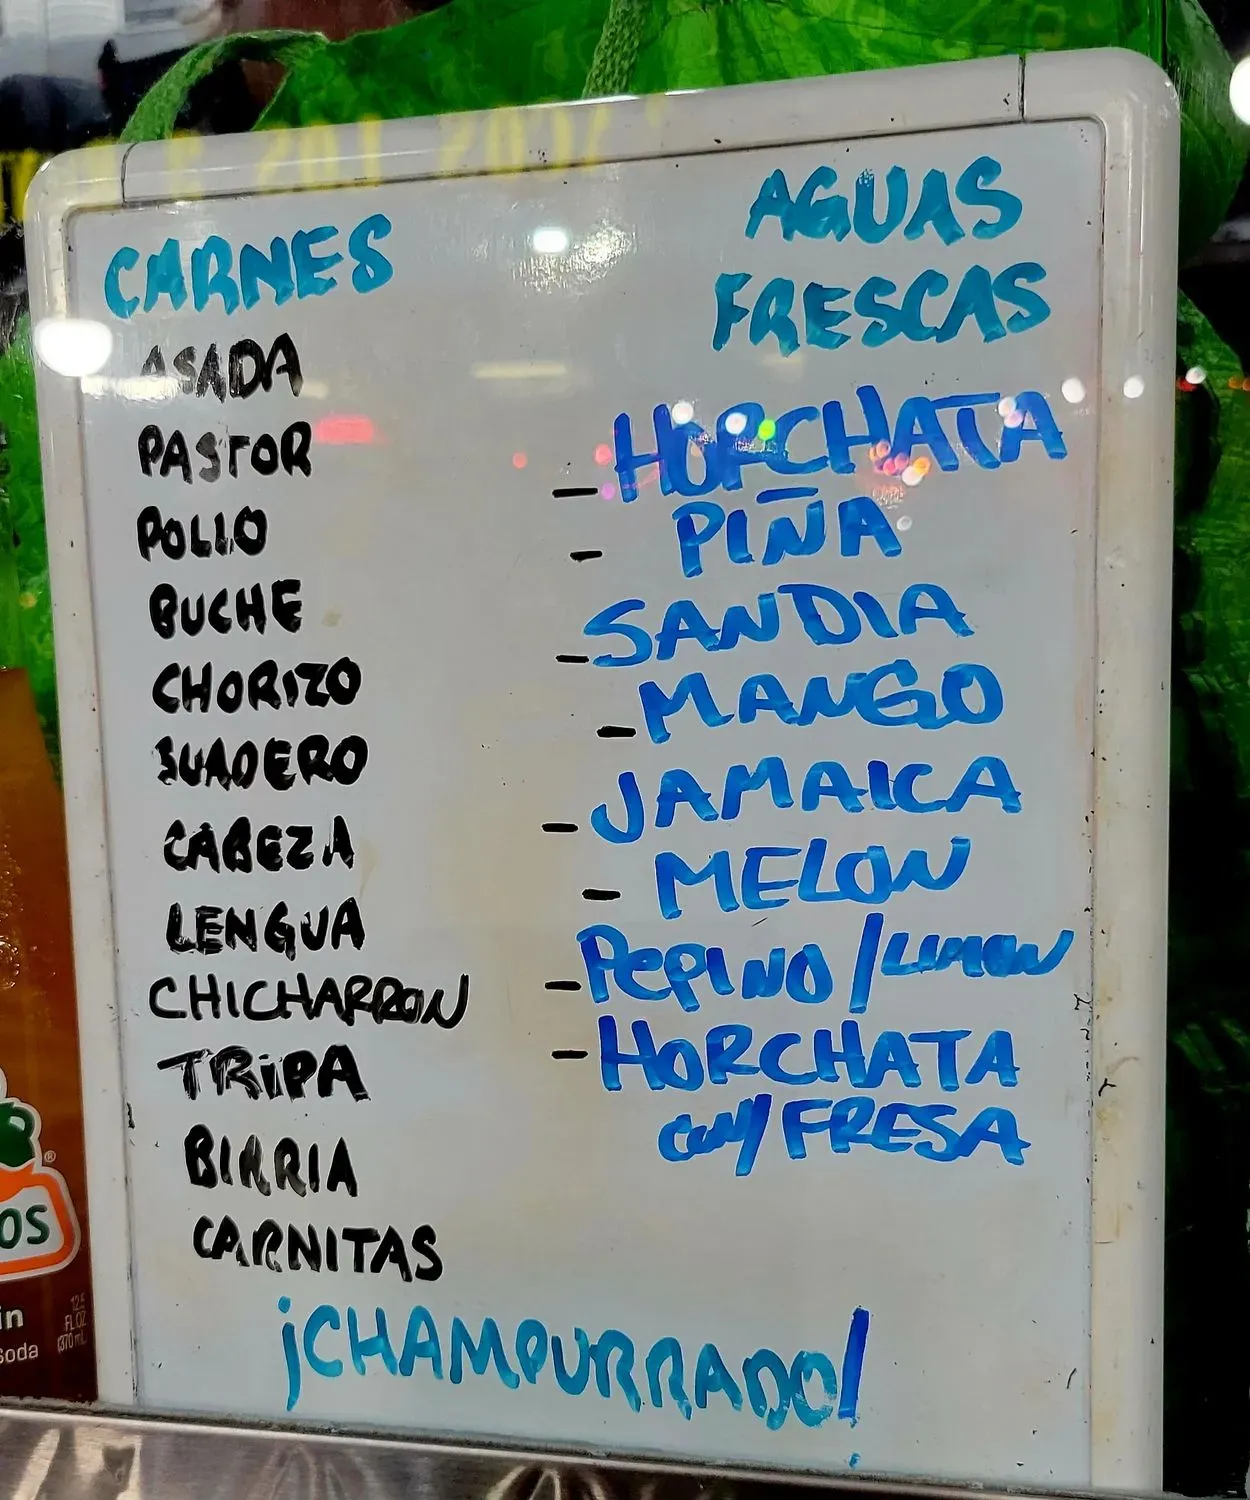 CARNES
ASADA
PASTOR
POLLO
BUCHE
CHORIZO
SUADERO
CABEZA
LENGUA
CHICHARRON
TRIPA
BIRRIA
CARNITAS
AGUAS
FRESCAS
- HORCHATA
- PIÑA
- SANDIA
- MANGO
- JAMAICA
- MELON
- PEPINO/LIMON
- HORCHATA
con/FRESA
¡CHAMPURRADO!
OS
in
soda
12
FL OZ
(370 mL